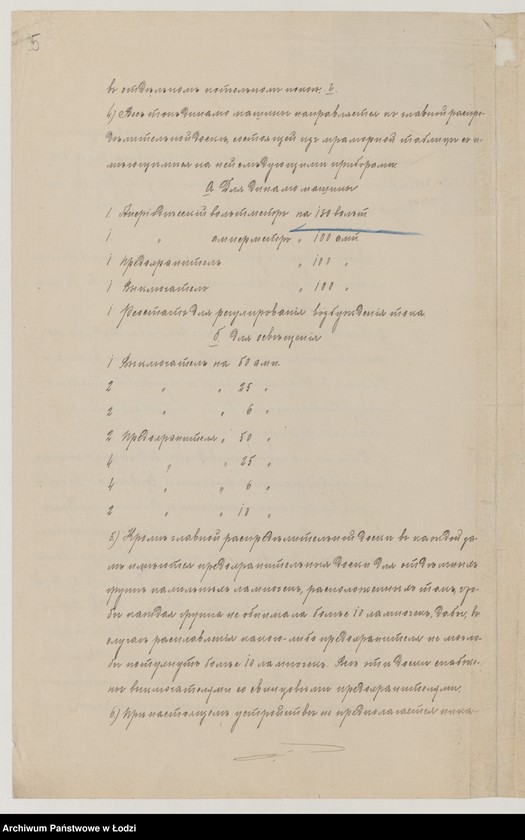 5
въ отдѣльномъ котельномъ
4) Весь токъ динамо машины направляется къ главной распре-
дѣлительной доскѣ, состоящей изъ мраморной таблицы съ и-
мѣющимися на ней слѣдующими приборами:
а Для динамо машины
1 Аперіодическій вольтметръ на 150 вольтъ
1 " амперметръ " 100 амп
1 Предохранитель " 100 "
1 Включатель " 100 "
1 Реостатъ для регулированія возбужденія тока.
б. Для освѣщенія
1 Включатель на 50 амп.
2 " " 25 "
2 " " 6 "
2 Предохранителя " 50 "
4 " " 25 "
4 " " 6 "
2 " " 10 "
5) Кромѣ главной распредѣлительной доски въ каждой
имѣются предохранительныя доски для отдѣльныхъ
группъ калильныхъ лампочекъ, расположенныхъ такъ, что-
бы каждая группа не обнимала болѣе 10 лампочекъ, дабы, въ
случаѣ расплавленія какого-либо предохранителя не могло
бы потухнуть болѣе 10 лампочекъ. Всѣ эти доски снабже-
ны включателями со свинцовыми предохранителями.
6) При настоящемъ устройствѣ не предполагается ника-
Archiwum Państwowe w Łodzi